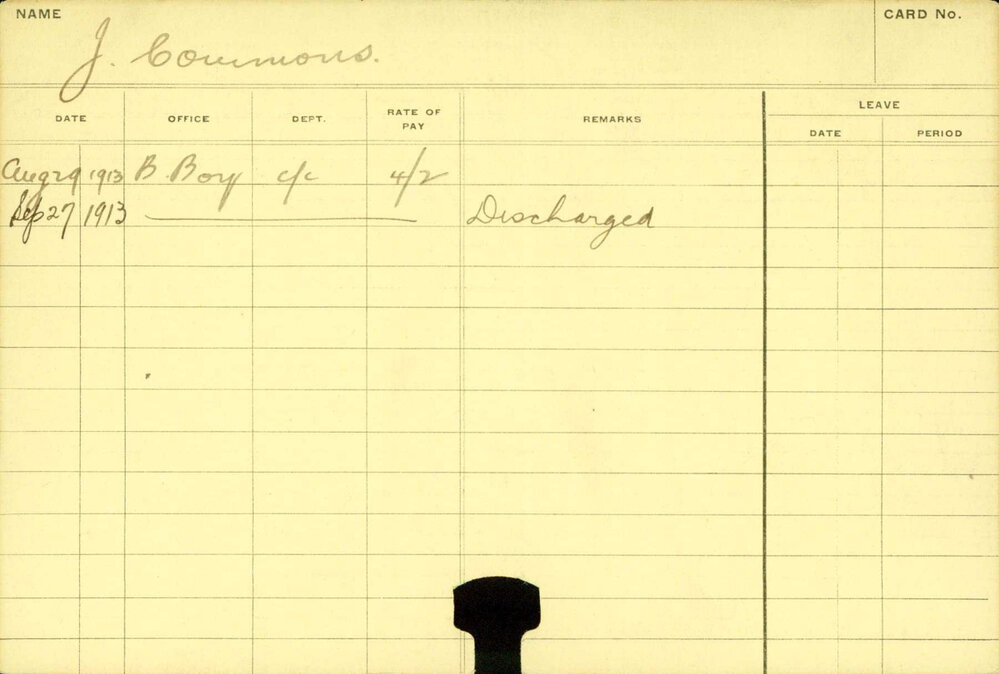 NAME
J. Commons.
CARD No.
DATE OFFICE DEPT. RATE OF PAY REMARKS LEAVE
DATE PERIOD
Aug 29 1913 B. Boy c/c 4/2
Sep 27 1913 Discharged